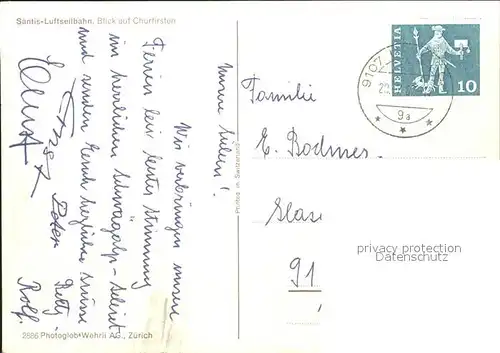 Säntis-Luftseilbahn. Blick auf Churfirsten
Meine Lieben!
Wir verbringen unsere
Ferien bei bester Stimmung
im herrlichen Schwägalp-Gebiet
und senden Euch herzliche Grüsse
Peter
Rolf.
2886 Photoglob-Wehrli AG., Zürich
Printed in Switzerland
HELVETIA
10
9107
9a
Familie
E. Bodmer
Glas
91
privacy protection
Datenschutz